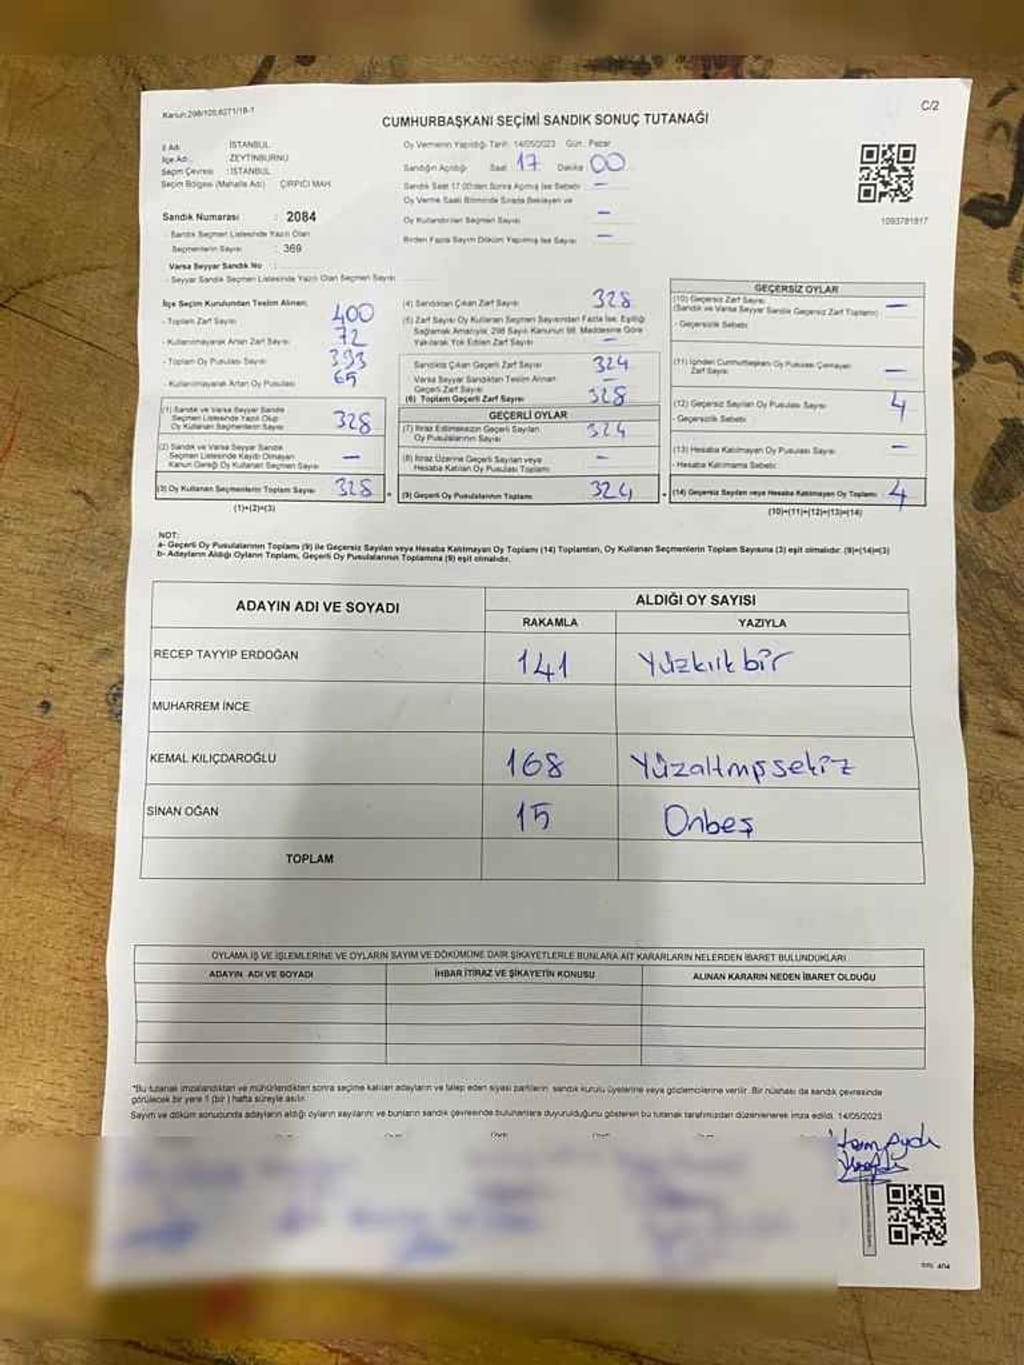 Kanun:298/105,6271/18-1
C/2
CUMHURBAŞKANI SEÇİMİ SANDIK SONUÇ TUTANAĞI
İl Adı : İSTANBUL
İlçe Adı : ZEYTİNBURNU
Seçim Çevresi : İSTANBUL
Seçim Bölgesi (Mahalle Adı) ÇIRPICI MAH.
Sandık Numarası : 2084
Sandık Seçmen Listesinde Yazılı Olan
Seçmenlerin Sayısı : 369
Varsa Seyyar Sandık No :
Seyyar Sandık Seçmen Listesinde Yazılı Olan Seçmen Sayısı
Oy Vermenin Yapıldığı Tarih 14/05/2023 Gün: Pazar
Sandığın Açıldığı Saat 17 Dakika 00
Sandık Saat 17.00'den Sonra Açılmış İse Sebebi —
Oy Verme Saati Bitiminde Sırada Bekleyen ve
Oy Kullandırılan Seçmen Sayısı —
Birden Fazla Sayım Döküm Yapılmış İse Sayısı —
1093781817
İlçe Seçim Kurulundan Teslim Alınan:
- Toplam Zarf Sayısı 400
- Kullanılmayarak Artan Zarf Sayısı 72
- Toplam Oy Pusulası Sayısı 393
- Kullanılmayarak Artan Oy Pusulası 65
(1) Sandık ve Varsa Seyyar Sandık
Seçmen Listesinde Yazılı Olup
Oy Kullanan Seçmenlerin Sayısı 328
(2) Sandık ve Varsa Seyyar Sandık
Seçmen Listesinde Kaydı Olmayan
Kanun Gereği Oy Kullanan Seçmen Sayısı —
(3) Oy Kullanan Seçmenlerin Toplam Sayısı 328
(1)+(2)=(3)
(4) Sandıktan Çıkan Zarf Sayısı 328
(5) Zarf Sayısı Oy Kullanan Seçmen Sayısından Fazla İse, Eşitliği
Sağlamak Amacıyla, 298 Sayılı Kanunun 98. Maddesine Göre
Yakılarak Yok Edilen Zarf Sayısı —
Sandıkta Çıkan Geçerli Zarf Sayısı 324
Varsa Seyyar Sandıktan Teslim Alınan
Geçerli Zarf Sayısı —
(6) Toplam Geçerli Zarf Sayısı 328
GEÇERLİ OYLAR
(7) İtiraz Edilmeksizin Geçerli Sayılan
Oy Pusulalarının Sayısı 324
(8) İtiraz Üzerine Geçerli Sayılan veya
Hesaba Katılan Oy Pusulası Toplamı —
(9) Geçerli Oy Pusulalarının Toplamı 324
GEÇERSİZ OYLAR
(10) Geçersiz Zarf Sayısı
(Sandık ve Varsa Seyyar Sandık Geçersiz Zarf Toplamı) —
- Geçersizlik Sebebi:
(11) İçinden Cumhurbaşkanı Oy Pusulası Çıkmayan
Zarf Sayısı —
(12) Geçersiz Sayılan Oy Pusulası Sayısı 4
- Geçersizlik Sebebi:
(13) Hesaba Katılmayan Oy Pusulası Sayısı —
- Hesaba Katılmama Sebebi:
(14) Geçersiz Sayılan veya Hesaba Katılmayan Oy Toplamı 4
(10)+(11)+(12)+(13)=(14)
NOT:
a- Geçerli Oy Pusulalarının Toplamı (9) ile Geçersiz Sayılan veya Hesaba Katılmayan Oy Toplamı (14) Toplamları, Oy Kullanan Seçmenlerin Toplam Sayısına (3) eşit olmalıdır. (9)+(14)=(3)
b- Adayların Aldığı Oyların Toplamı, Geçerli Oy Pusulalarının Toplamına (9) eşit olmalıdır.
ADAYIN ADI VE SOYADI
ALDIĞI OY SAYISI
RAKAMLA YAZIYLA
RECEP TAYYİP ERDOĞAN 141 Yüzkırkbir
MUHARREM İNCE
KEMAL KILIÇDAROĞLU 168 Yüzaltmışsekiz
SİNAN OĞAN 15 Onbeş
TOPLAM
OYLAMA İŞ VE İŞLEMLERİNE VE OYLARIN SAYIM VE DÖKÜMÜNE DAİR ŞİKAYETLERLE BUNLARA AİT KARARLARIN NELERDEN İBARET BULUNDUKLARI
ADAYIN ADI VE SOYADI İHBAR İTİRAZ VE ŞİKAYETİN KONUSU ALINAN KARARIN NEDEN İBARET OLDUĞU
*Bu tutanak imzalandıktan ve mühürlendikten sonra seçime katılan adayların ve talep eden siyasi partilerin sandık kurulu üyelerine veya gözlemcilerine verilir. Bir nüshası da sandık çevresinde
görülecek bir yere 1 (bir) hafta süreyle asılır.
Sayım ve döküm sonucunda adayların aldığı oyların sayılarını ve bunların sandık çevresinde bulunanlara duyurulduğunu gösteren bu tutanak tarafımızdan düzenlenerek imza edildi. 14/05/2023